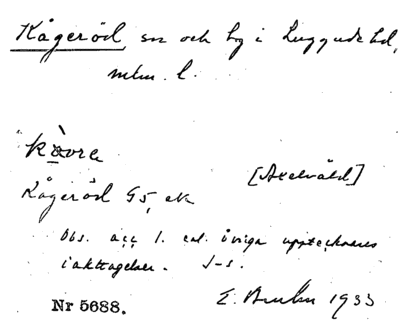 Kågeröd sn och by i Luggude hd,
mlm. l.
kåvra
[Axelvåld]
Kågeröd G5, ek
Obs. acc 1. enl. övriga upptecknares
iakttagelser. J-s.
1933
Nr 5688.